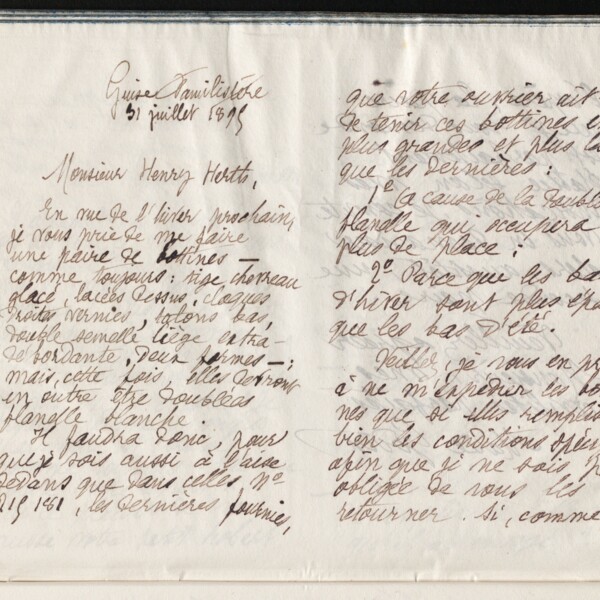 Guise Familistère
31 juillet 1895
Monsieur Henry Herth,
En vue de l'hiver prochain,
je vous prie de me faire
une paire de bottines —
comme toujours : tige chevreau
glacé, lacées dessus, claques
droites vernies, talons bas,
double semelle liège extra-
débordante, deux formes — ;
mais, cette fois, elles devront
en outre être doublées
flanelle blanche.
Il faudra donc, pour
que je sois aussi à l'aise
dedans que dans celles, No
215 181, les dernières fournies,
que votre ouvrier ait
de tenir ces bottines
plus grandes et plus
que les dernières :
1o À cause de la
flanelle qui occupera
plus de place ;
2o Parce que les
d'hiver sont plus
que les bas d'été.
Veillez, je vous en
à ne m'expédier les
nes que si elles
bien ces conditions
afin que je ne sois
obligée de vous les
retourner. Si, comme